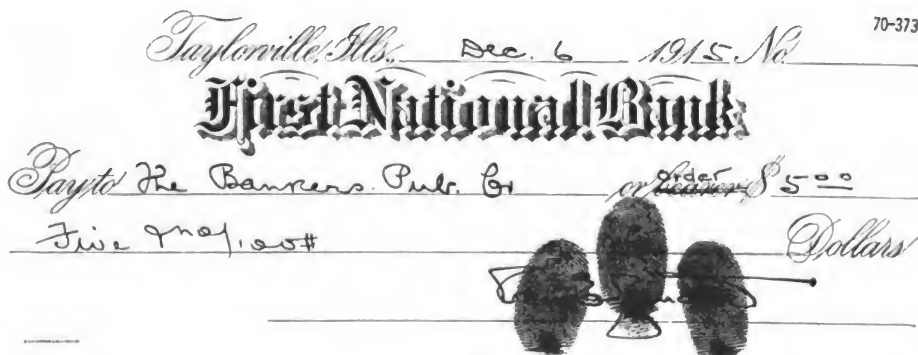 70-373
Taylorville, Ills., Dec. 6 1915 No.
First National Bank
Pay to The Bankers. Pub. Co or order $ 5 00
Five
Dollars